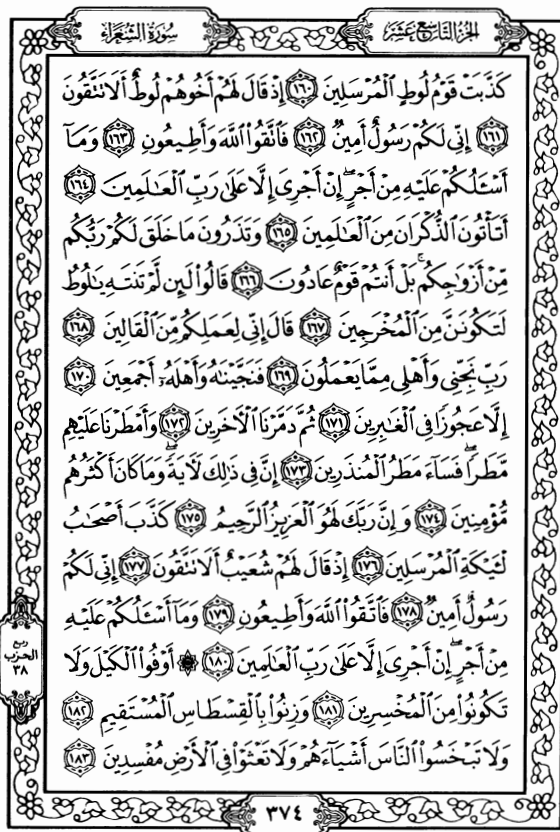 الجزء التاسع عشر
سورة الشعراء
كَذَّبَتْ قَوْمُ لُوطٍ الْمُرْسَلِينَ ١٦٠ إِذْ قَالَ لَهُمْ أَخُوهُمْ لُوطٌ أَلَا تَتَّقُونَ
١٦١ إِنِّي لَكُمْ رَسُولٌ أَمِينٌ ١٦٢ فَاتَّقُوا اللَّهَ وَأَطِيعُونِ ١٦٣ وَمَآ
أَسْـَٔلُكُمْ عَلَيْهِ مِنْ أَجْرٍ ۖ إِنْ أَجْرِىَ إِلَّا عَلَىٰ رَبِّ الْعَـٰلَمِينَ ١٦٤
أَتَأْتُونَ الذُّكْرَانَ مِنَ الْعَـٰلَمِينَ ١٦٥ وَتَذَرُونَ مَا خَلَقَ لَكُمْ رَبُّكُم
مِّنْ أَزْوَٰجِكُم ۚ بَلْ أَنتُمْ قَوْمٌ عَادُونَ ١٦٦ قَالُوا لَئِن لَّمْ تَنتَهِ يَـٰلُوطُ
لَتَكُونَنَّ مِنَ الْمُخْرَجِينَ ١٦٧ قَالَ إِنِّي لِعَمَلِكُم مِّنَ الْقَالِينَ ١٦٨
رَبِّ نَجِّنِي وَأَهْلِي مِمَّا يَعْمَلُونَ ١٦٩ فَنَجَّيْنَـٰهُ وَأَهْلَهُۥٓ أَجْمَعِينَ ١٧٠
إِلَّا عَجُوزًا فِي الْغَـٰبِرِينَ ١٧١ ثُمَّ دَمَّرْنَا الْـَٔاخَرِينَ ١٧٢ وَأَمْطَرْنَا عَلَيْهِم
مَّطَرًا ۖ فَسَآءَ مَطَرُ الْمُنذَرِينَ ١٧٣ إِنَّ فِي ذَٰلِكَ لَـَٔايَةً ۖ وَمَا كَانَ أَكْثَرُهُم
مُّؤْمِنِينَ ١٧٤ وَإِنَّ رَبَّكَ لَهُوَ الْعَزِيزُ الرَّحِيمُ ١٧٥ كَذَّبَ أَصْحَـٰبُ
لْـَٔيْكَةِ الْمُرْسَلِينَ ١٧٦ إِذْ قَالَ لَهُمْ شُعَيْبٌ أَلَا تَتَّقُونَ ١٧٧ إِنِّي لَكُمْ
رَسُولٌ أَمِينٌ ١٧٨ فَاتَّقُوا اللَّهَ وَأَطِيعُونِ ١٧٩ وَمَآ أَسْـَٔلُكُمْ عَلَيْهِ
مِنْ أَجْرٍ ۖ إِنْ أَجْرِىَ إِلَّا عَلَىٰ رَبِّ الْعَـٰلَمِينَ ١٨٠ ۞ أَوْفُوا الْكَيْلَ وَلَا
تَكُونُوا مِنَ الْمُخْسِرِينَ ١٨١ وَزِنُوا بِالْقِسْطَاسِ الْمُسْتَقِيمِ ١٨٢
وَلَا تَبْخَسُوا النَّاسَ أَشْيَآءَهُمْ وَلَا تَعْثَوْا فِي الْأَرْضِ مُفْسِدِينَ ١٨٣
ربع
الحزب
٣٨
٣٧٤